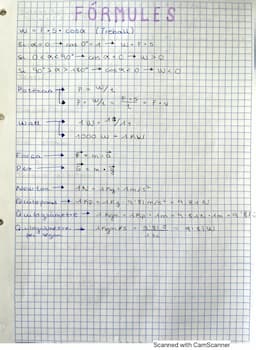 FÓRMULES
W = F · S · cosα (Treball)
Si α = 0 → cos 0° = 1 → W = F · S
Si 0 < α < 90° → cos α > 0 → W > 0
Si 90° > α > 180° → cos α < 0 → W < 0
Potència → P = W/t
→ P = W/t = F·S/t = F · v
Watt → 1 W = 1J/1s
→ 1000 W = 1 KW
Força → F = m · a
Pes → G = m · g
Newton → 1N = 1Kg · 1m/s²
Quilopond → 1Kp = 1Kg · 9'81 m/s² = 9'81N
Quilogràmetre → 1Kgm = 1Kp · 1m = 9'81N · 1m = 9'81
Quilogràmetre → 1Kgm/s = 9'81J/1s = 9'81W
per segon
Scanned with CamScanner